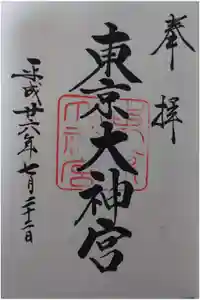 奉拝
東京大神宮
平成廿六年七月二十二日